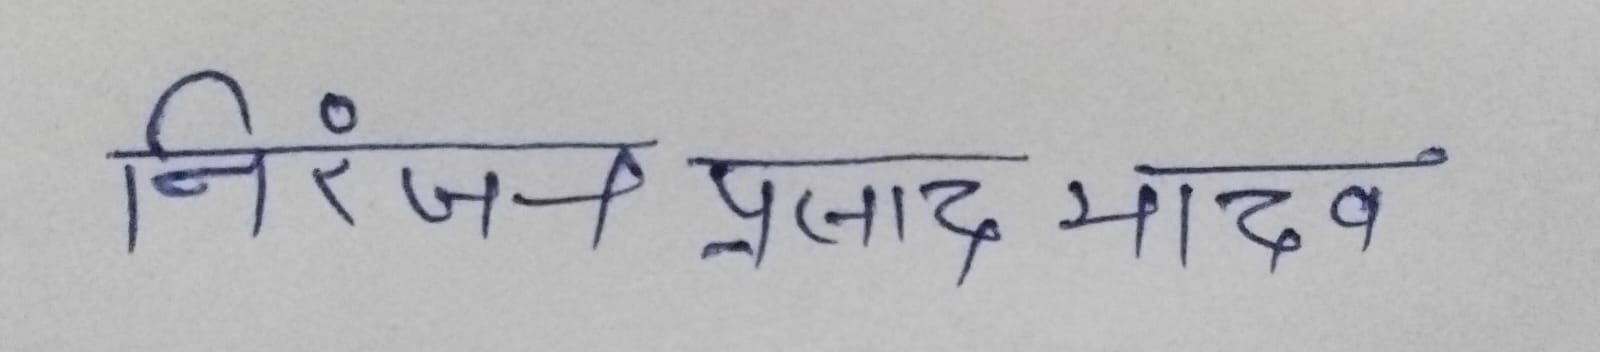 निरंजन प्रसाद यादव